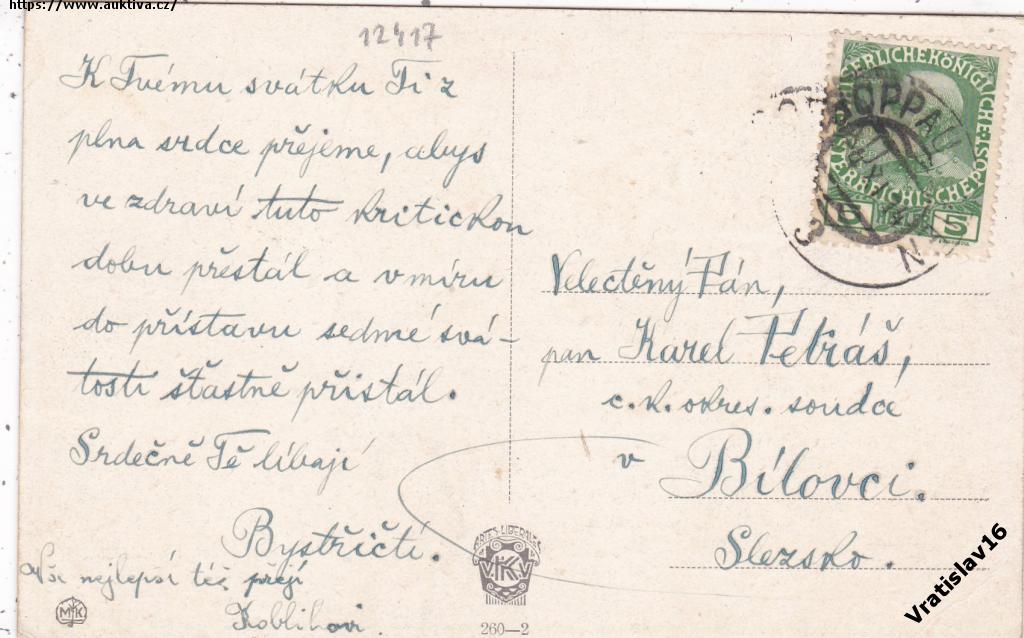 https://www.auktiva.cz/
12417
K Tvému svátku Ti z
plna srdce přejeme, abys
ve zdraví tuto kritickou
dobu přestál a v míru
do přístavu sedmé svá-
tosti šťastně přistál.
Srdečně Tě líbají
Bystřičtí.
Vše nejlepší též přejí
Koblihovi.
MK
ARTES LIBERALES
VKKV
260—2
SERLICHEKÖNIGLICHEPOST
ERREICHISCHEPOS
5
TROPPAU
Velectěný Pán,
pan Karel Petráš,
c. k. okres. soudce
v Bílovci.
Slezsko.
Vratislav16